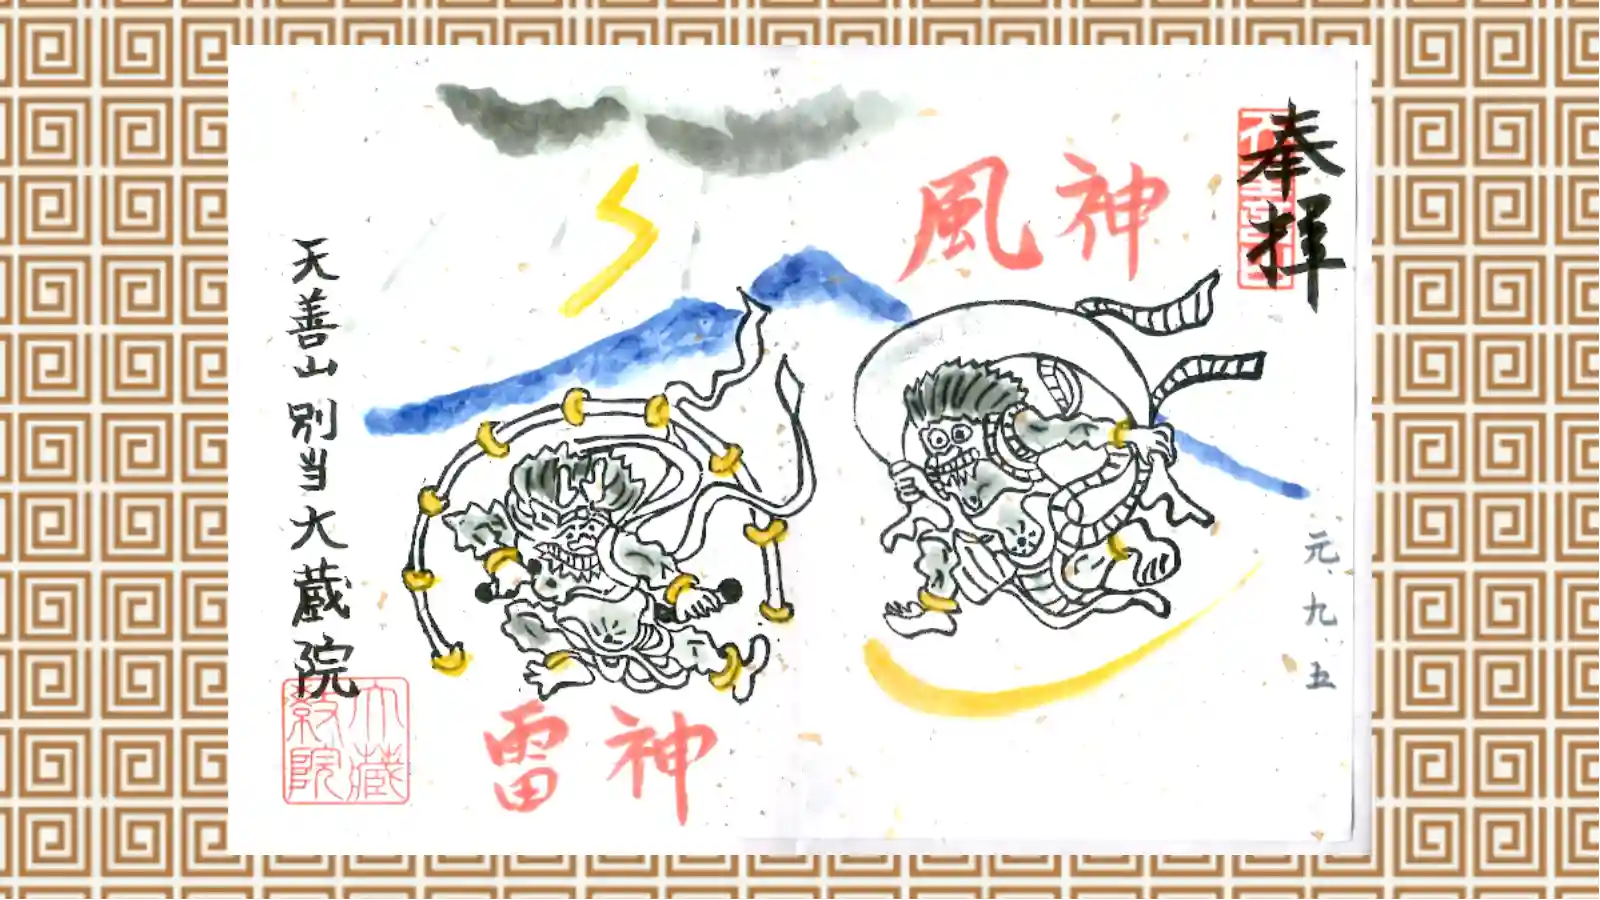 奉拝
風神
元.九.五
雷神
天善山別当大蔵院